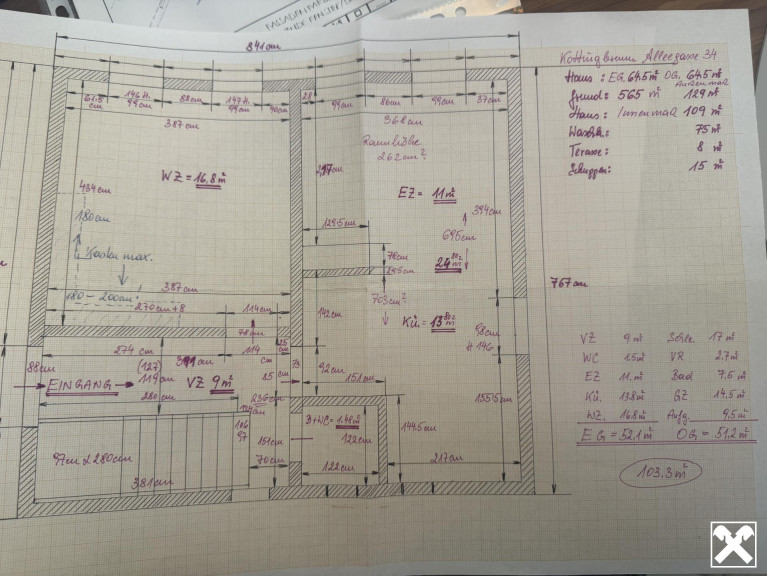 841 cm
Kottingbrunn Alleegasse 34
Haus: EG 64.5 m² OG. 64.5 m²
Aussenmaß
Grund: 565 m² 129 m²
Haus: Innenmaß 109 m²
75 m²
Terasse: 8 m²
Schuppen: 15 m²
61.5 cm
146 H.
99 cm
88 cm
147 H.
99 cm
90 cm
28
99 cm
80 cm
99 cm
37 cm
387 cm
368 cm
Raumhöhe
262 cm
WZ = 16,8 m²
EZ = 11 m²
434 cm
180 cm
Kasten max.
180 - 200 cm
387 cm
270 cm + 8
114 cm
129.5 cm
78 cm
29.5 cm
394 cm
695 cm
24.80 m²
767 cm
703 cm
Kü. = 13.80 m²
142 cm
78 cm
98 cm
# 146
274 cm
114 cm
25 cm
73
88 cm
(127)
119 cm
EINGANG
VZ 9 m²
280 cm
85 cm
92 cm
151 cm
236 cm
124 cm
106
97
151 cm
70 cm
B+WC = 1.48 m²
122 cm
122 cm
144.5 cm
155.5 cm
217 cm
97 cm x 280 cm
381 cm
VZ 9 m² Schlz. 17 m²
WC 1.5 m² VR 2.7 m²
EZ 11. m² Bad 7.5 m²
Kü. 13.8 m² GZ 14.5 m²
WZ. 16.8 m² Aufg. 9.5 m²
EG = 52.1 m² OG = 51.2 m²
103.3 m²